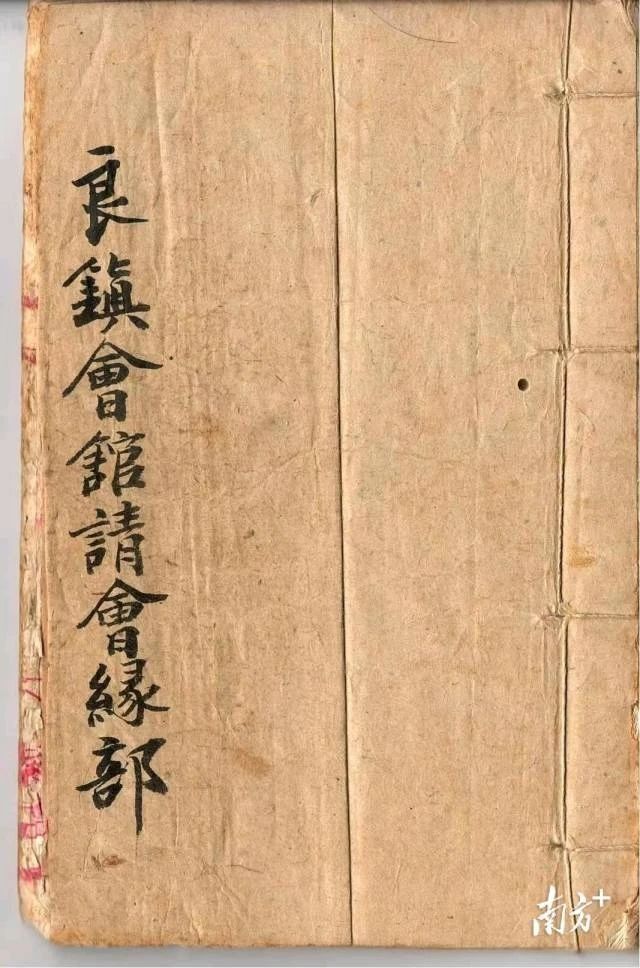 良鎮會舘請會緣部
南方+